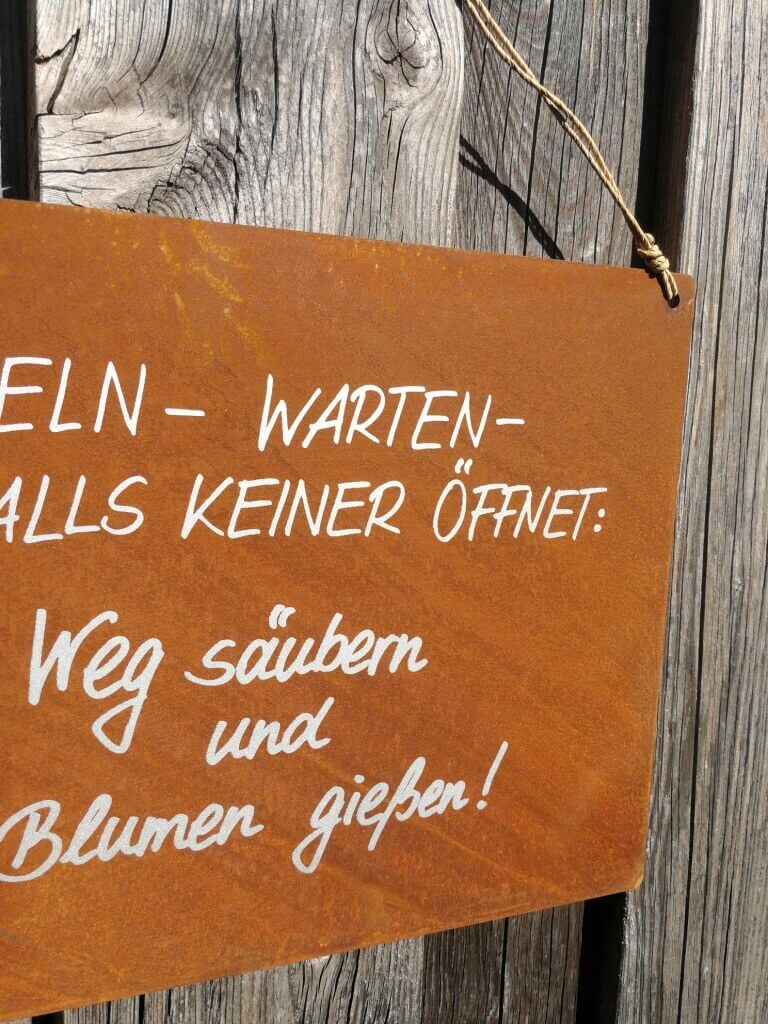 ELN- WARTEN-
ALLS KEINER ÖFFNET:
Weg säubern
und
Blumen gießen!